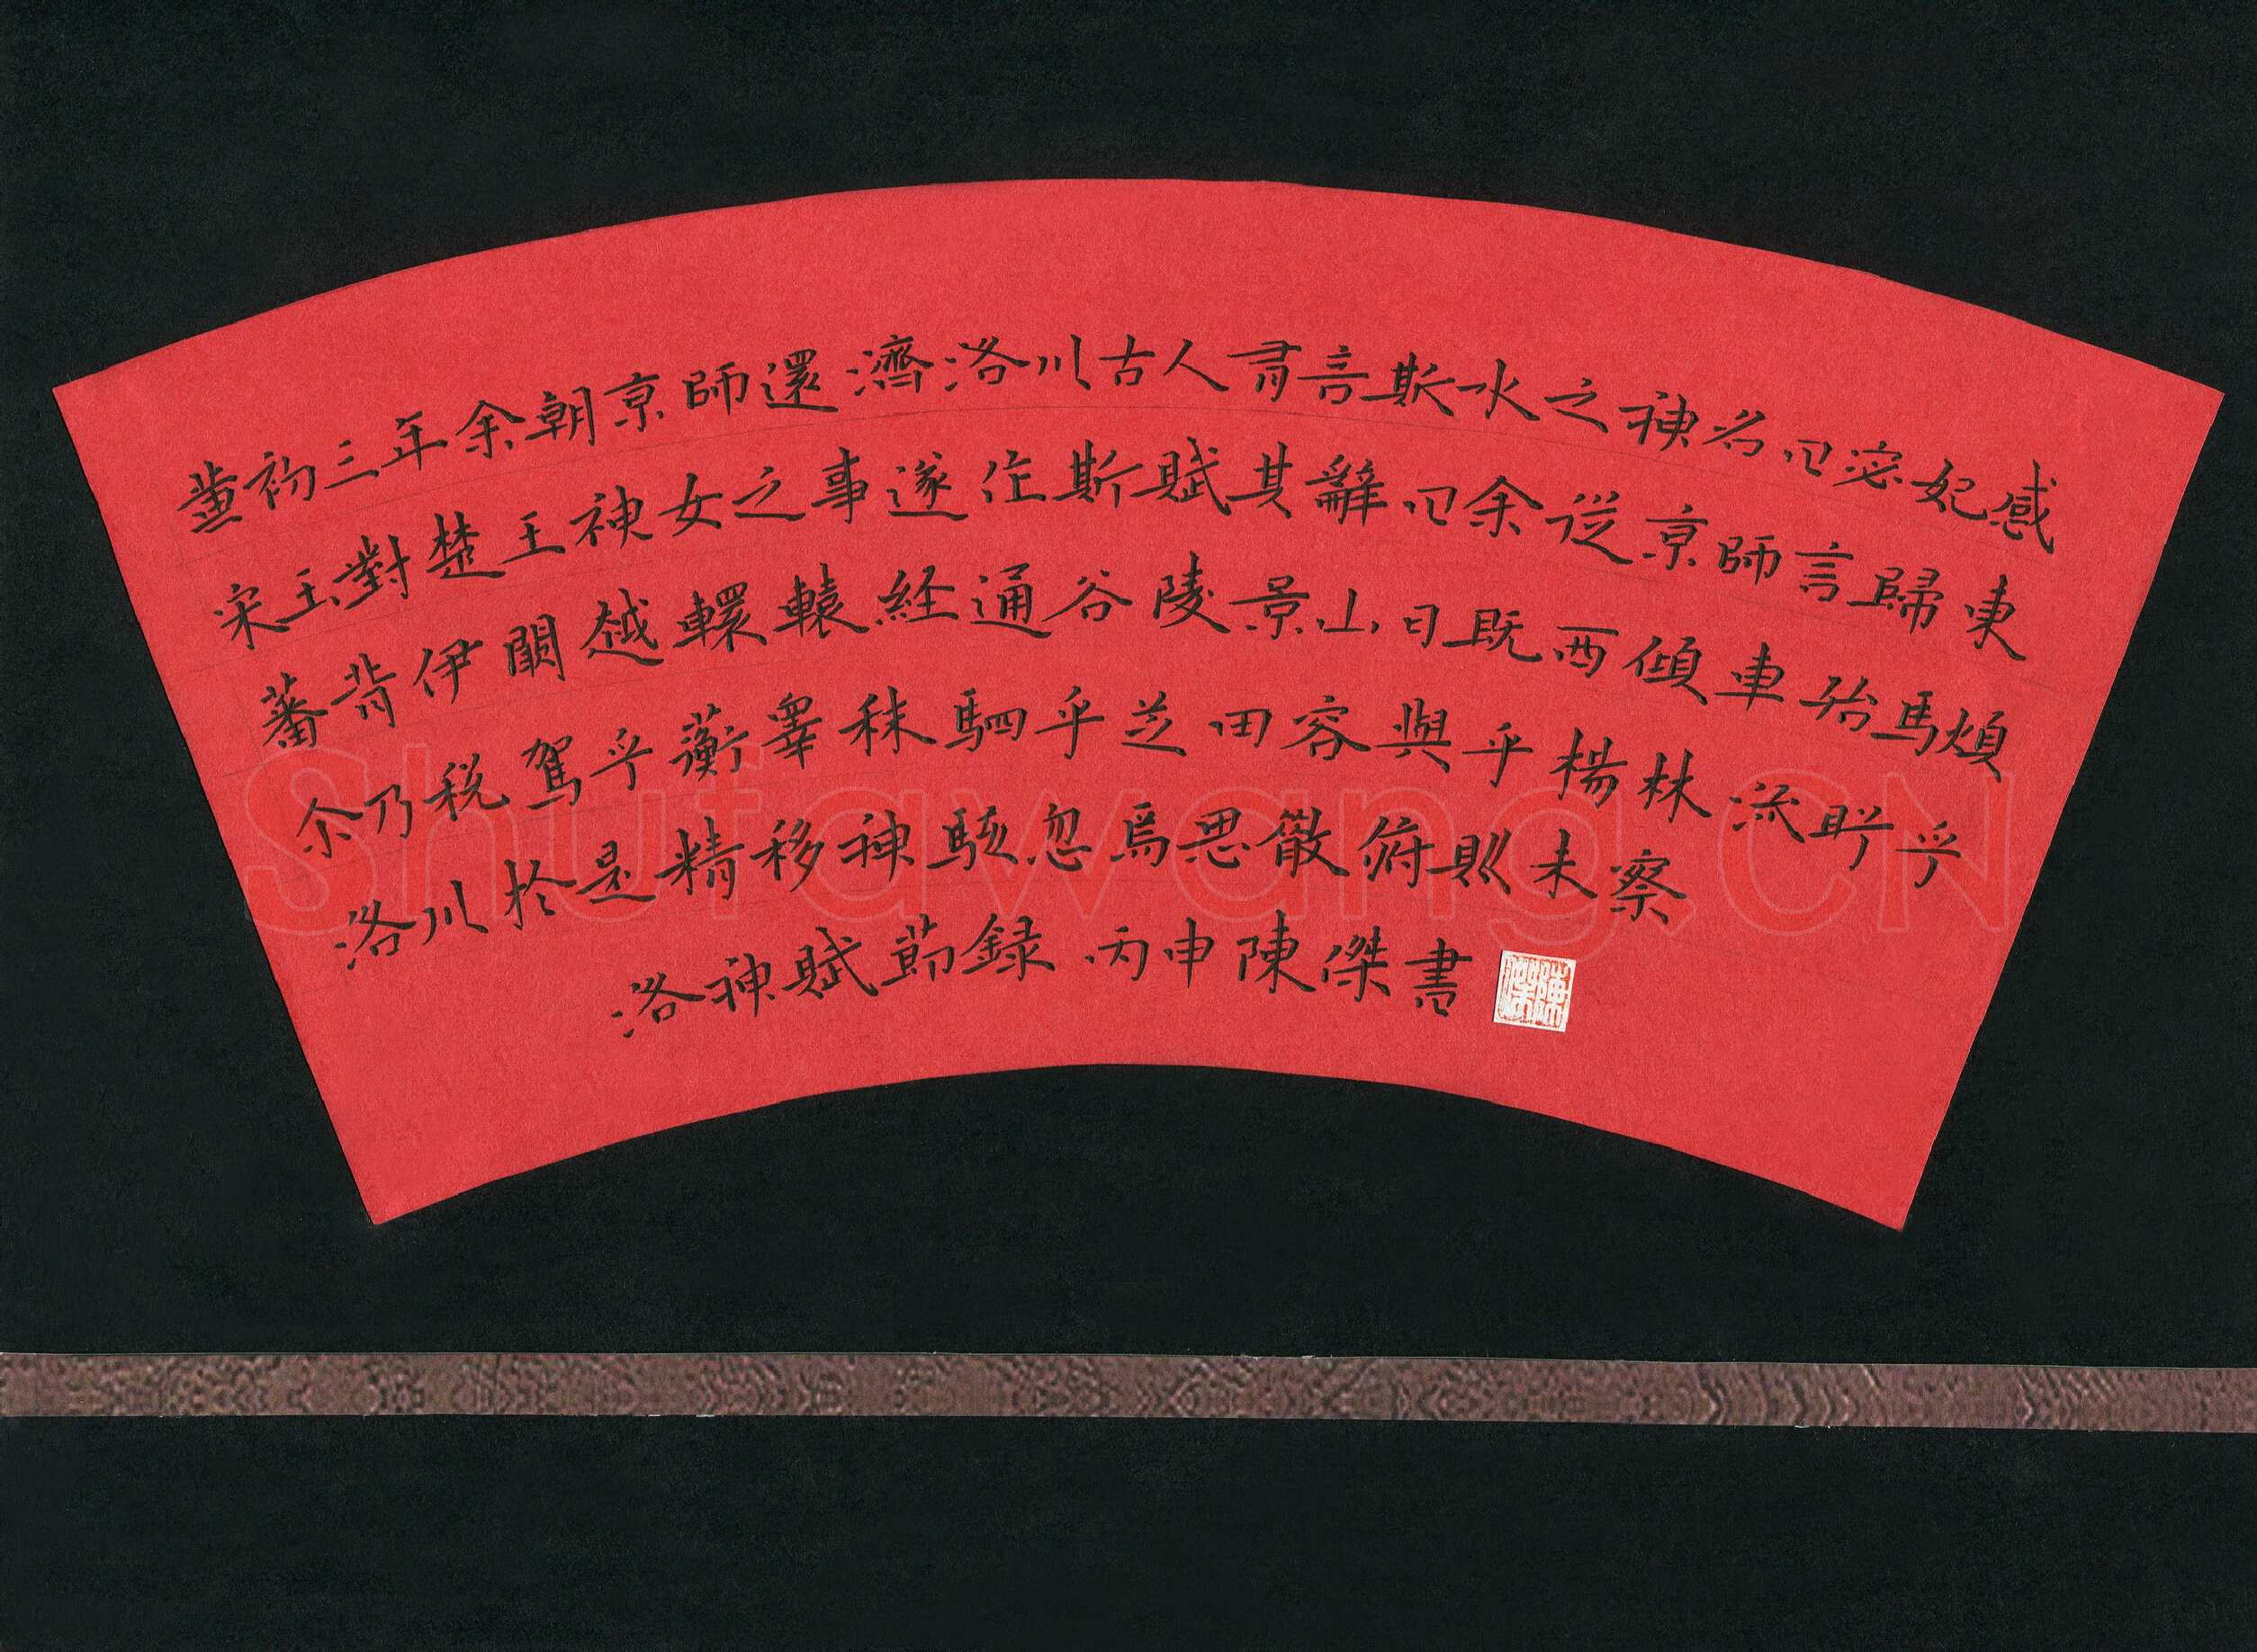 黃初三年余朝京師還濟洛川古人有言斯水之神名曰宓妃感
宋玉對楚王神女之事遂作斯賦其辭曰余從京師言歸東
蕃背伊闕越轘轅経通谷陵景山日既西傾車殆馬煩
尒乃税駕乎蘅皋秣駟乎芝田容與乎楊林流眄乎
洛川於是精移神駭忽焉思散俯則未察
洛神賦節録 丙申陳傑書
陳傑
Shufawang.CN